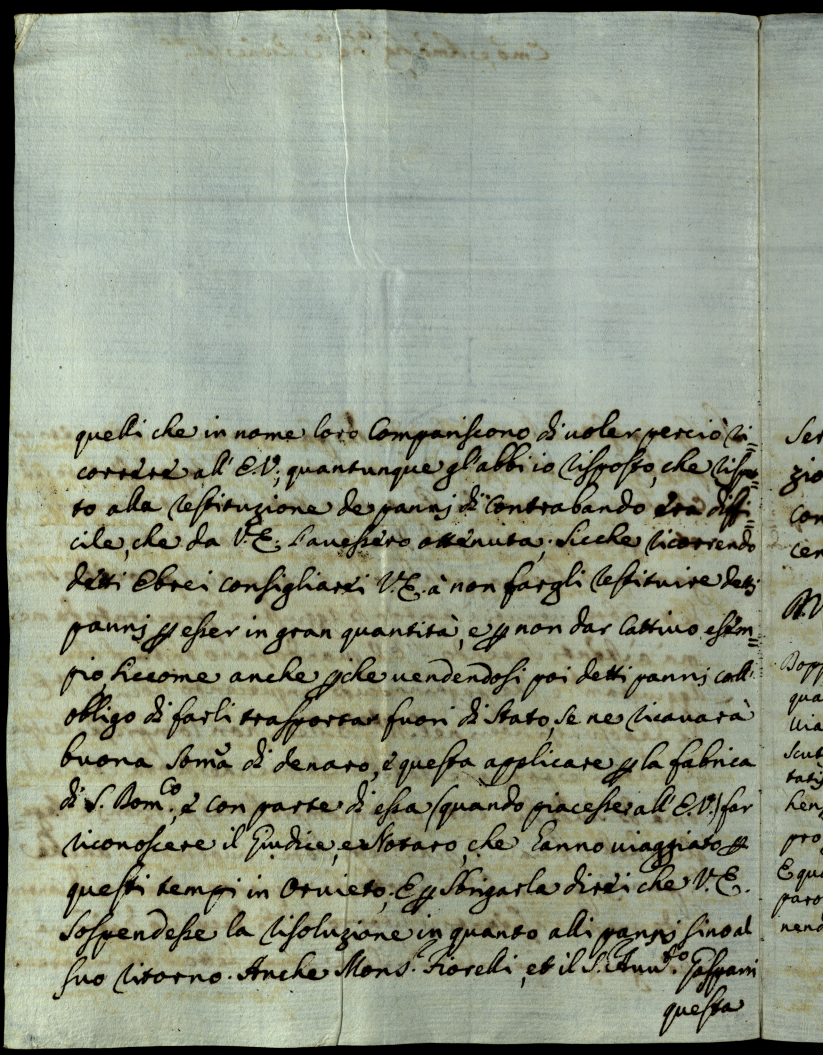 quelli che in nome loro Compariscono di voler perciò ri=
correre all' E.V., quantunque gl'abbi io risposto, che rispet=
to alla restituzione de pannj di Contrabando era diffi=
cile, che da V.E. l'avessero ottenuta; Sicche ricorrendo
detti Ebrei consigliarei V.E. à non fargli restituire detti
pannj ꝑ esser in gran quantità, e ꝑ non dar Cattivo esem=
pio, siccome anche ꝑche vendendosi poi detti pannj coll'
obligo di farli trasportar fuori di Stato, se ne ricavarà
buona Somã di denaro, e questa applicare ꝑ la fabrica
di S. Dom.co, e con parte di essa (quando piacesse all' E.V.) far
riconoscere il Giudice, e Notaro, che hanno viaggiato ꝑ
questi tempi in Orvieto, E ꝑ Sbrigarla direi che V.E.
Sospendesse la risoluzione in quanto alli pannj sino al
suo ritorno. Anche Mons.r Fiorelli, et il S.r Gasparri
questa
Ser
zio
con
cen
Dopp
qua
via
Scut
tati
hen
pro
E qu
paro
nend